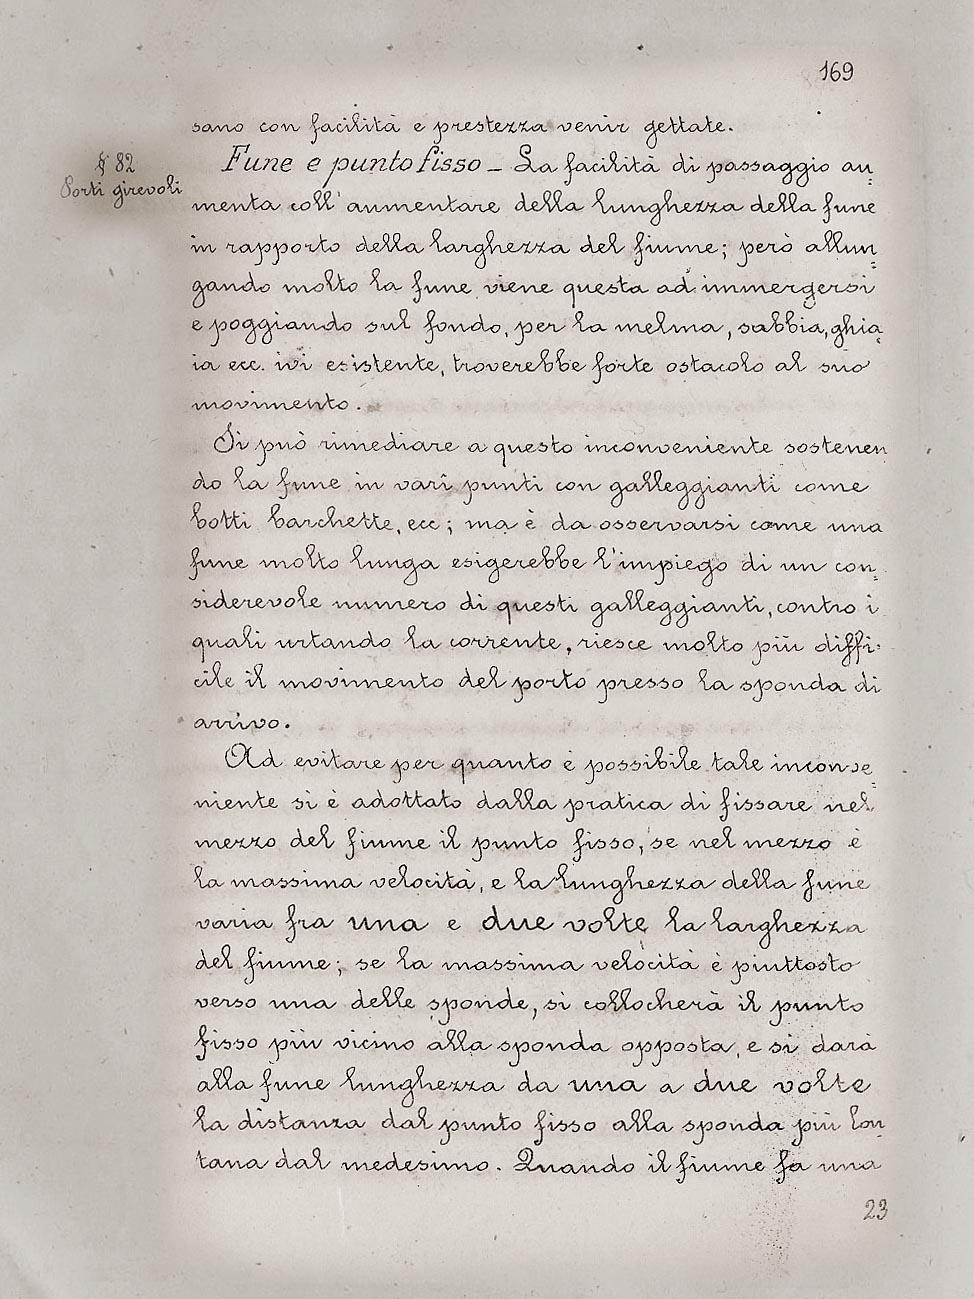 169
sano con facilità e prestezza venir gettate.
§ 82
Porti girevoli
Fune e punto fisso - La facilità di passaggio au=
menta coll' aumentare della lunghezza della fune
in rapporto della larghezza del fiume; però allun=
gando molto la fune viene questa ad immergersi
e poggiando sul fondo, per la melma, sabbia, ghia=
ia ecc. ivi esistente, troverebbe forte ostacolo al suo
movimento.
Si può rimediare a questo inconveniente sostenen
do la fune in vari punti con galleggianti come
botti barchette, ecc; ma è da osservarsi come una
fune molto lunga esigerebbe l'impiego di un con=
siderevole numero di questi galleggianti, contro i
quali urtando la corrente, riesce molto più diffi=
cile il movimento del porto presso la sponda di
arrivo.
Ad evitare per quanto è possibile tale inconve=
niente si è adottato dalla pratica di fissare nel
mezzo del fiume il punto fisso, se nel mezzo è
la massima velocità, e la lunghezza della fune
varia fra una e due volte la larghezza
del fiume; se la massima velocità è piuttosto
verso una delle sponde, si collocherà il punto
fisso più vicino alla sponda opposta, e si darà
alla fune lunghezza da una a due volte
la distanza dal punto fisso alla sponda più lon=
tana dal medesimo. Quando il fiume fa una
23